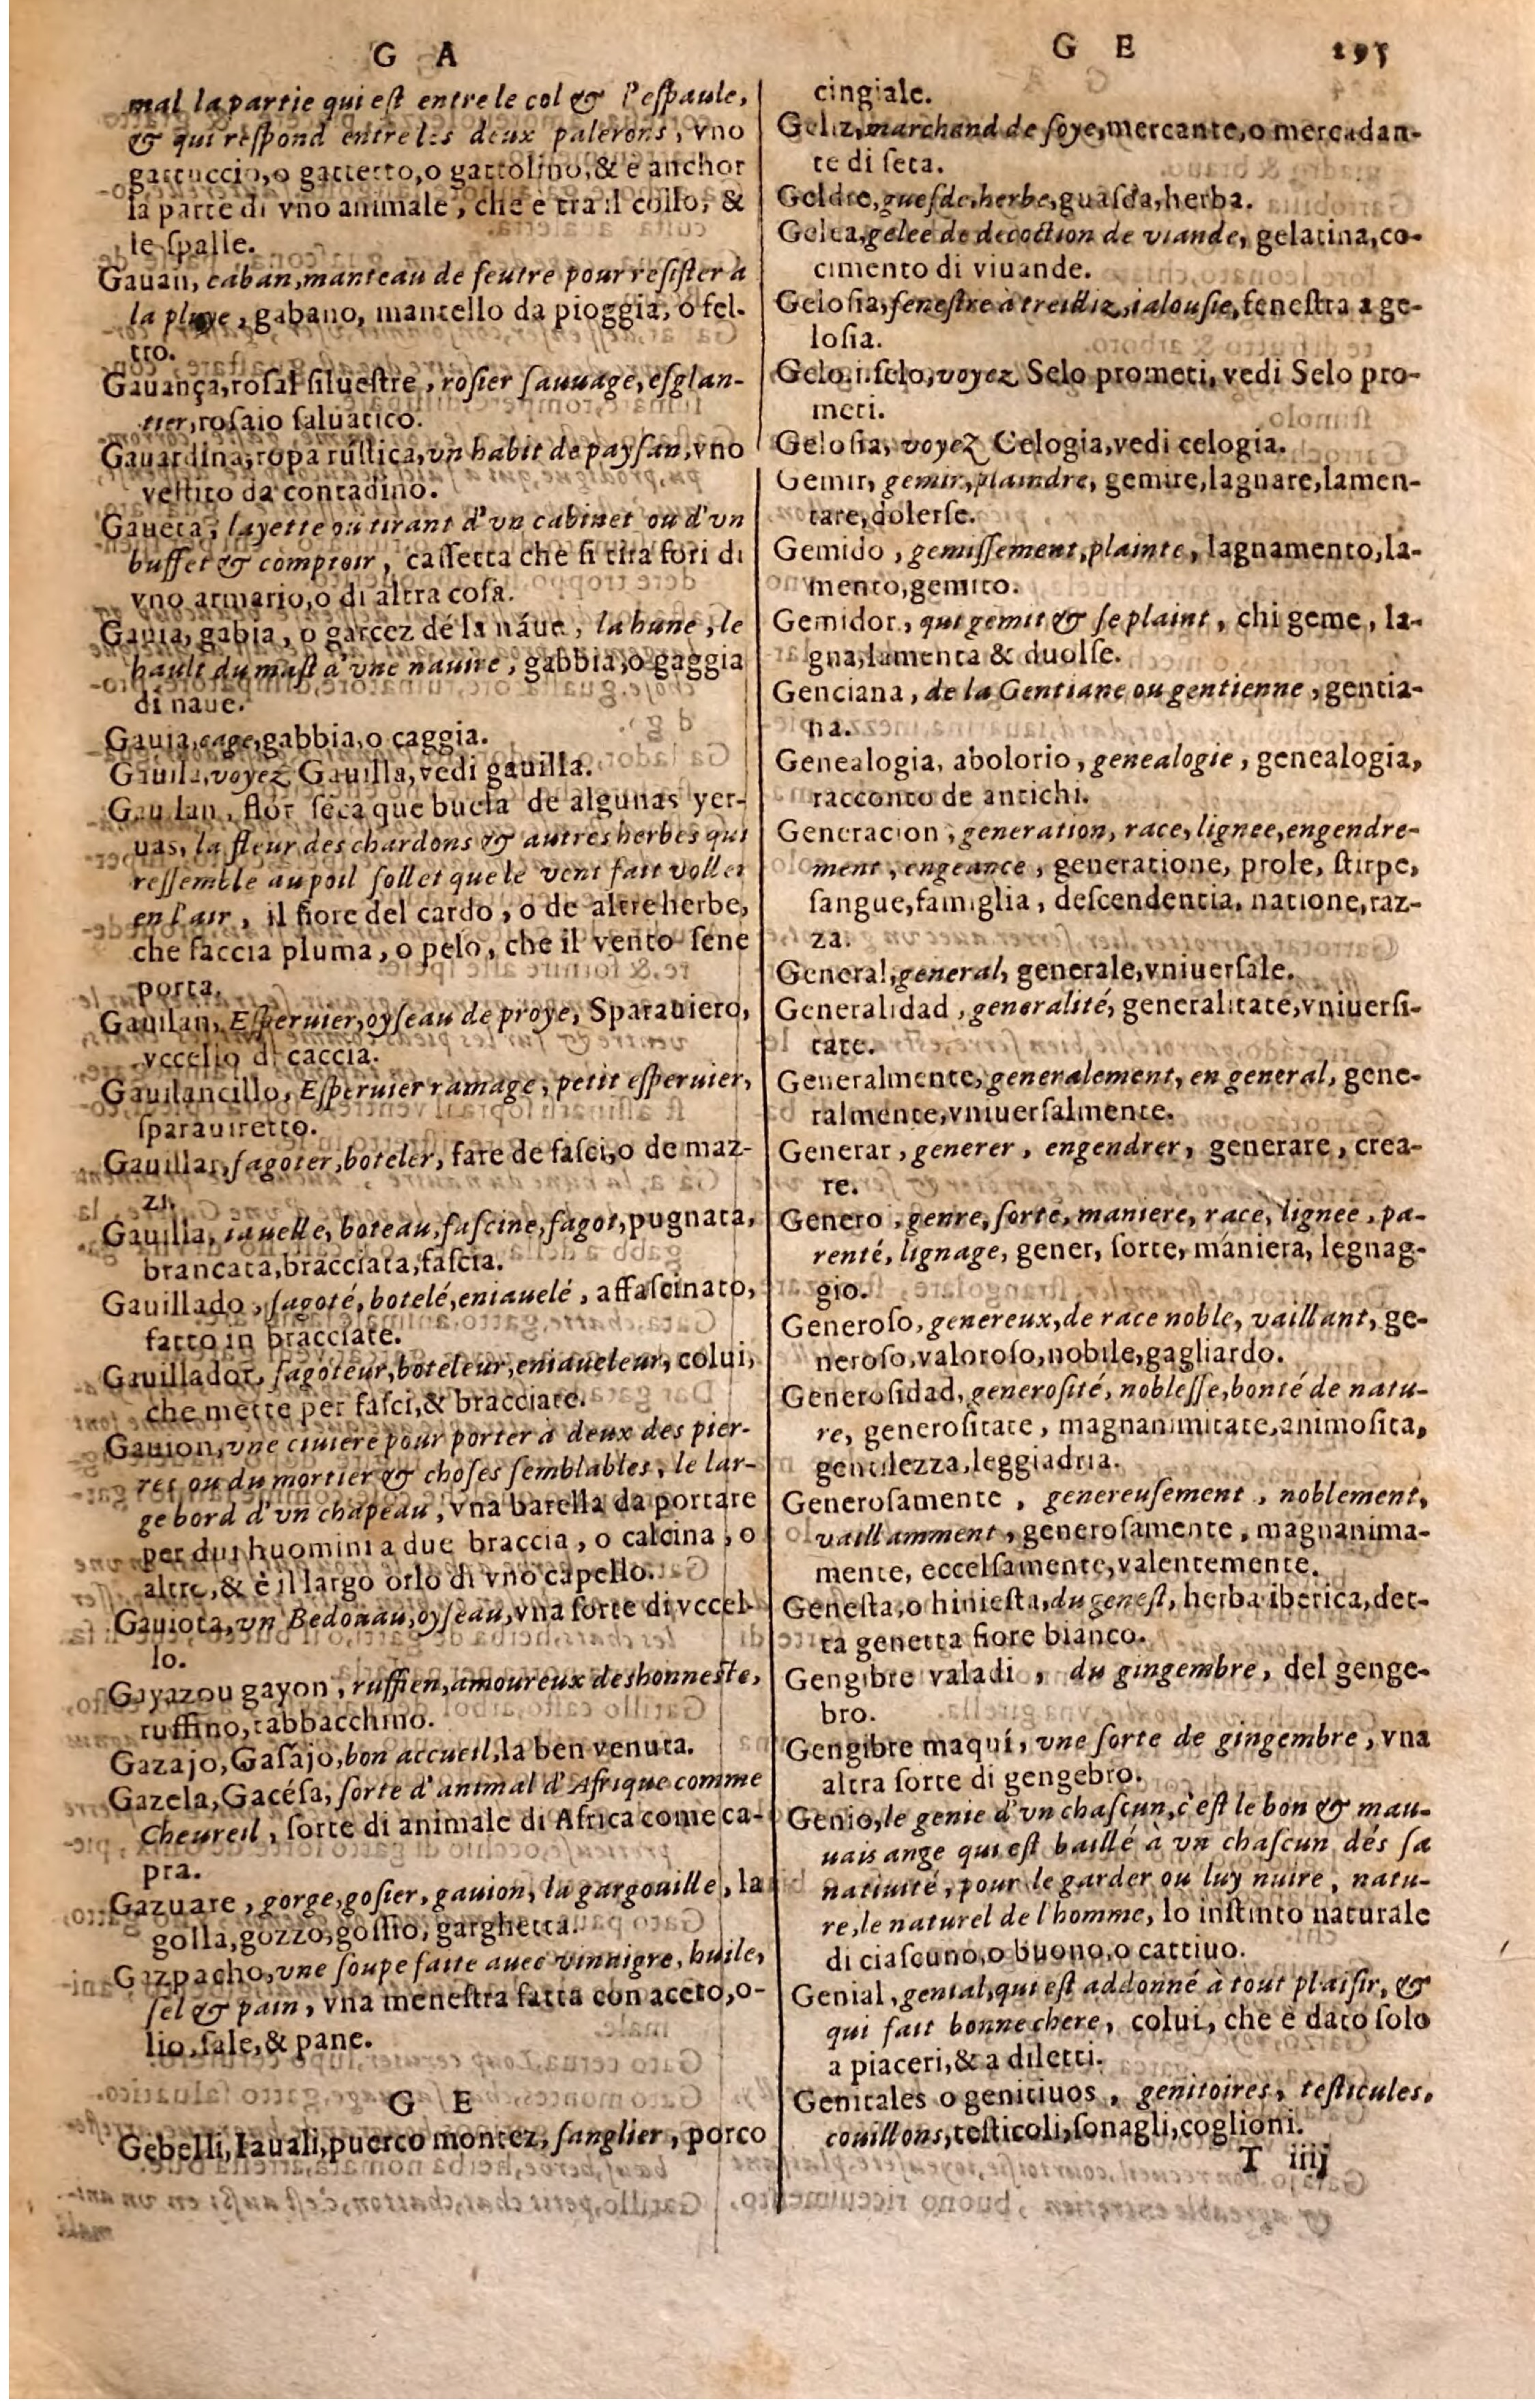 G A
mal la partie qui est entre le col & l'espaule,
& qui respond entre les deux palerons, vno
gattuccio, o gattetto, o gattolino, & è anchor
la parte di vno animale, che è tra il collo, &
le spalle.
Gauan, caban, manteau de feutre pour resister à
la pluye, gabano, mantello da pioggia, o fel-
tro.
Gauança, rosal siluestre, rosier sauuage, esglan-
tier, rosaio saluatico.
Gauardina, ropa rústica, vn habit de paysan, vno
vestito da contadino.
Gaueta, layette ou tirant d'vn cabinet ou d'vn
buffet & comptoir, cassetta che si tira fori di
vno armario, o di altra cosa.
Gauia, gabia, o garcez de la náue, la hune, le
hault du mast d'vne nauire, gabbia, o gaggia
di naue.
Gauia, cage, gabbia, o caggia.
Gauila, voyez Gauilla, vedi gauilla.
Gauilan, flor séca que buela de algunas yer-
uas, la fleur des chardons & autres herbes qui
ressemble au poil sollet que le vent fait voller
en l'air, il fiore del cardo, o de altre herbe,
che faccia pluma, o pelo, che il vento sene
porta.
Gauilan, Esperuier, oyseau de proye, Sparauiero,
vccello di caccia.
Gauilancillo, Esperuier ramage, petit esperuier,
sparauiretto.
Gauillar, fagoter, boteler, fare de fasci, o de maz-
zi.
Gauilla, iauelle, boteau, fascine, fagot, pugnata,
brancata, bracciata, fascia.
Gauillado, fagoté, botelé, eniauelé, affascinato,
fatto in bracciate.
Gauillador, fagoteur, boteleur, eniaueleur, colui,
che mette per fasci, & bracciate.
Gauion, vne ciuiere pour porter à deux des pier-
res ou du mortier & choses semblables, le lar-
ge bord d'vn chapeau, vna barella da portare
per dui huomini a due braccia, o calcina, o
altre, & è il largo orlo di vno capello.
Gauiota, vn Bedonau, oyseau, vna sorte di vccel-
lo.
Gayazou gayon, ruffien, amoureux deshonneste,
ruffino, tabbacchino.
Gazajo, Gasájo, bon accueil, la ben venuta.
Gazela, Gacésa, sorte d'animal d'Afrique comme
Cheureil, sorte di animale di Africa come ca-
pra.
Gazuare, gorge, gosier, gauion, la gargouille, la
golla, gozzo, gossio, garghetta.
Gazpacho, vne soupe faite auec vinaigre, huile,
sel & pain, vna menestra fatta con aceto, o-
lio, sale, & pane.
G E
Gebelli, Iauali, puerco montez, sanglier, porco
G E 295
cingiale.
Geliz, marchand de soye, mercante, o mercadan-
te di seta.
Geldre, guesde, herbe, guasda, herba.
Gelea, gelee de decoction de viande, gelatina, co-
cimento di viuande.
Gelosia, fenestre à treilliz, ialousie, fenestra a ge-
losia.
Gelo. i. selo, voyez Selo prometi, vedi Selo pro-
meti.
Gelosia, voyez Celogia, vedi celogia.
Gemir, gemir, plaindre, gemire, lagnare, lamen-
tare, dolerse.
Gemido, gemissement, plainte, lagnamento, la-
mento, gemito.
Gemidor, qui gemit & se plaint, chi geme, la-
gna, lamenta & duolse.
Genciana, de la Gentiane ou gentienne, gentia-
na.
Genealogia, abolorio, genealogie, genealogia,
racconto de antichi.
Generacion, generation, race, lignee, engendre-
ment, engeance, generatione, prole, stirpe,
sangue, famiglia, descendentia, natione, raz-
za.
General, general, generale, vniuersale.
Generalidad, generalité, generalitate, vniuersi-
tate.
Generalmente, generalement, en general, gene-
ralmente, vniuersalmente.
Generar, generer, engendrer, generare, crea-
re.
Genero, genre, sorte, maniere, race, lignee, pa-
renté, lignage, gener, sorte, mániera, legnag-
gio.
Generoso, genereux, de race noble, vaillant, ge-
neroso, valoroso, nobile, gagliardo.
Generosidad, generosité, noblesse, bonté de natu-
re, generositate, magnanimitate, animosita,
gentilezza, leggiadria.
Generosamente, genereusement, noblement,
vaillamment, generosamente, magnanima-
mente, eccelsamente, valentemente.
Genesta, o hiniesta, du genest, herba iberica, det-
ta genetta fiore bianco.
Gengibre valadi, du gingembre, del genge-
bro.
Gengibre maquí, vne sorte de gingembre, vna
altra sorte di gengebro.
Genio, le genie d'vn chascun, c'est le bon & mau-
uais ange qui est baillé à vn chascun dés sa
natiuité, pour le garder ou luy nuire, natu-
re, le naturel de l'homme, lo instinto naturale
di ciascuno, o buono, o cattiuo.
Genial, genial, qui est addonné à tout plaisir, &
qui fait bonne chere, colui, che è dato solo
a piaceri, & a diletti.
Genitales o genitiuos, genitoires, testicules,
couillons, testicoli, sonagli, coglioni.
T iiij